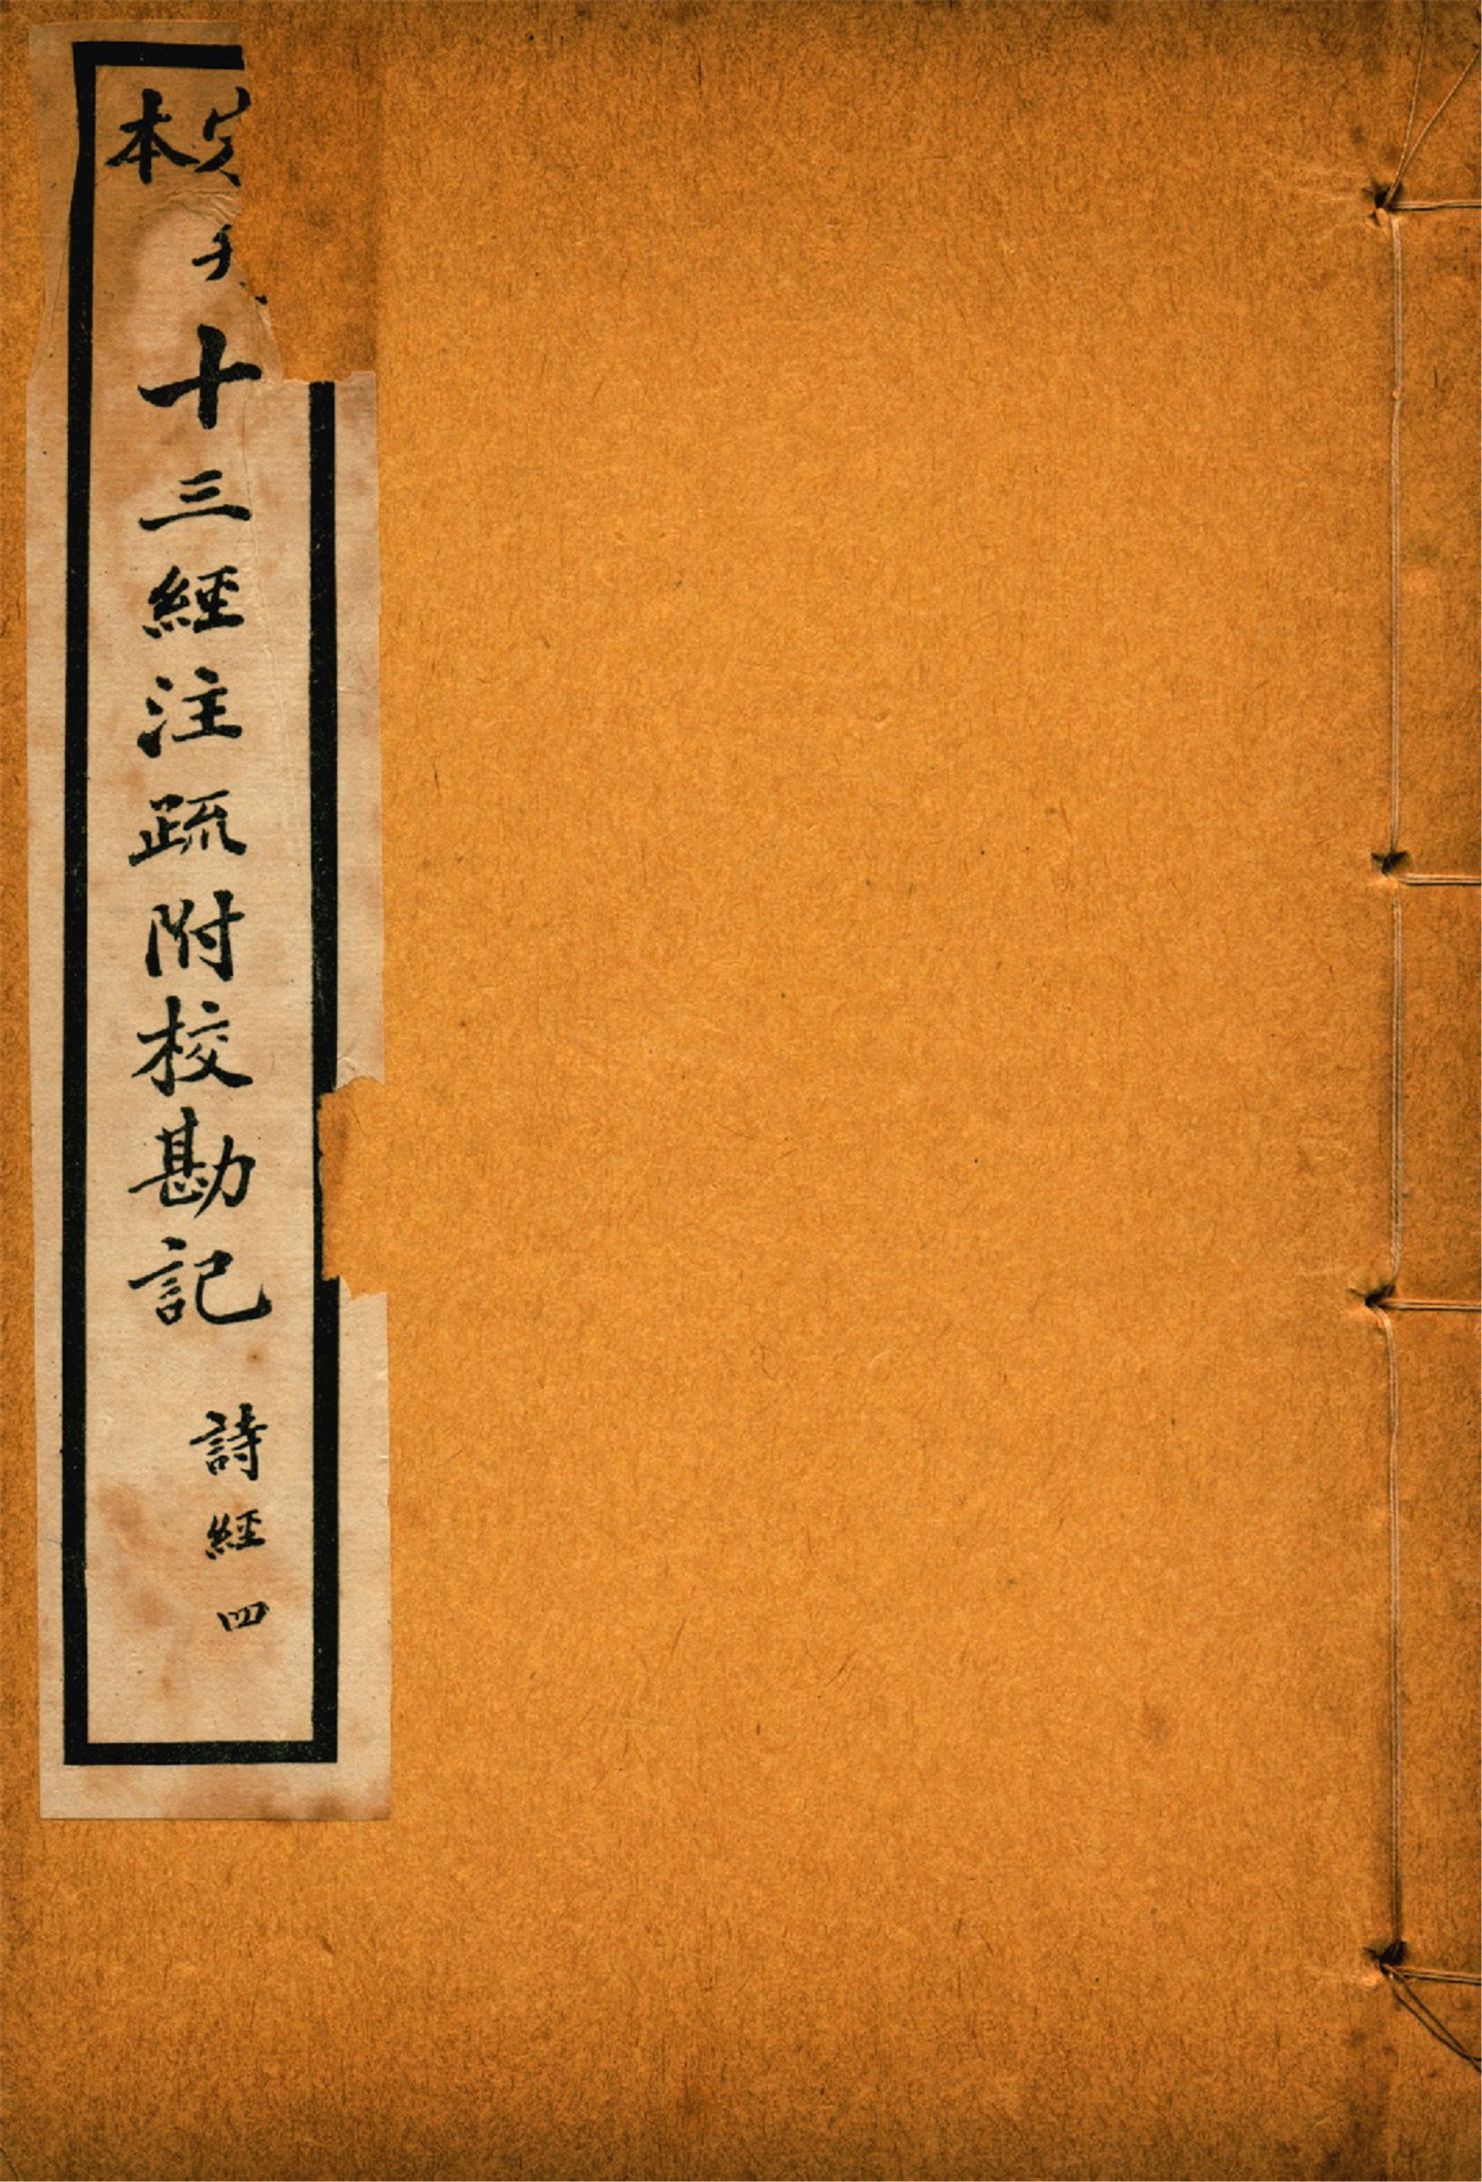 本
十三經注疏附校勘記
詩經四